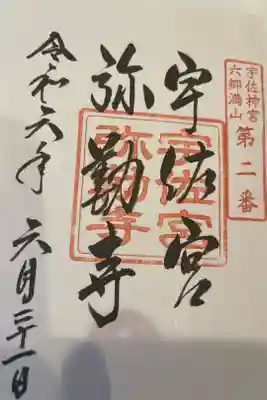 宇佐神宮
六郷満山
第二番
宇佐宮
弥勤寺
宇佐宮
弥勒寺
令和六年 六月二十一日